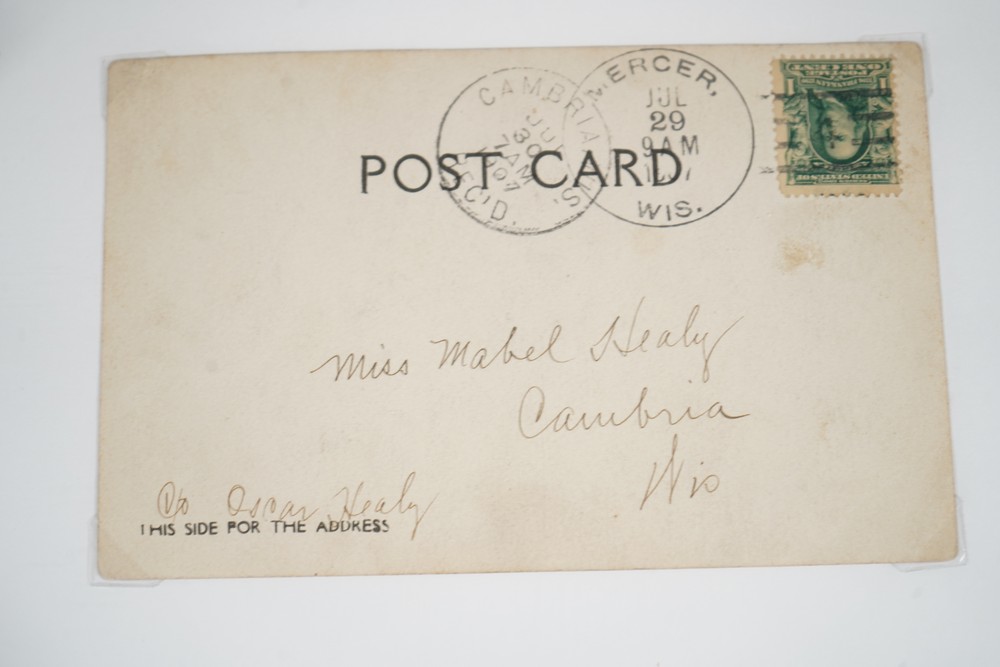 CAMBRIA WIS.
30
7 AM
1907
REC'D.
MERCER,
JUL
29
9 AM
WIS.
POST CARD
Miss Mabel Healy
Cambria
Wis
c/o Oscar Healy
THIS SIDE FOR THE ADDRESS
ONE CENT
POSTAGE
1 1
UNITED STATES OF